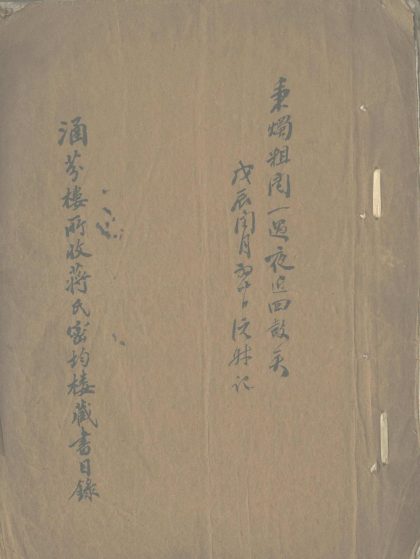 秉燭粗閱一過夜近四鼓矣
戊辰閏月初十日記
涵芬樓所收蔣氏密均樓藏書目錄